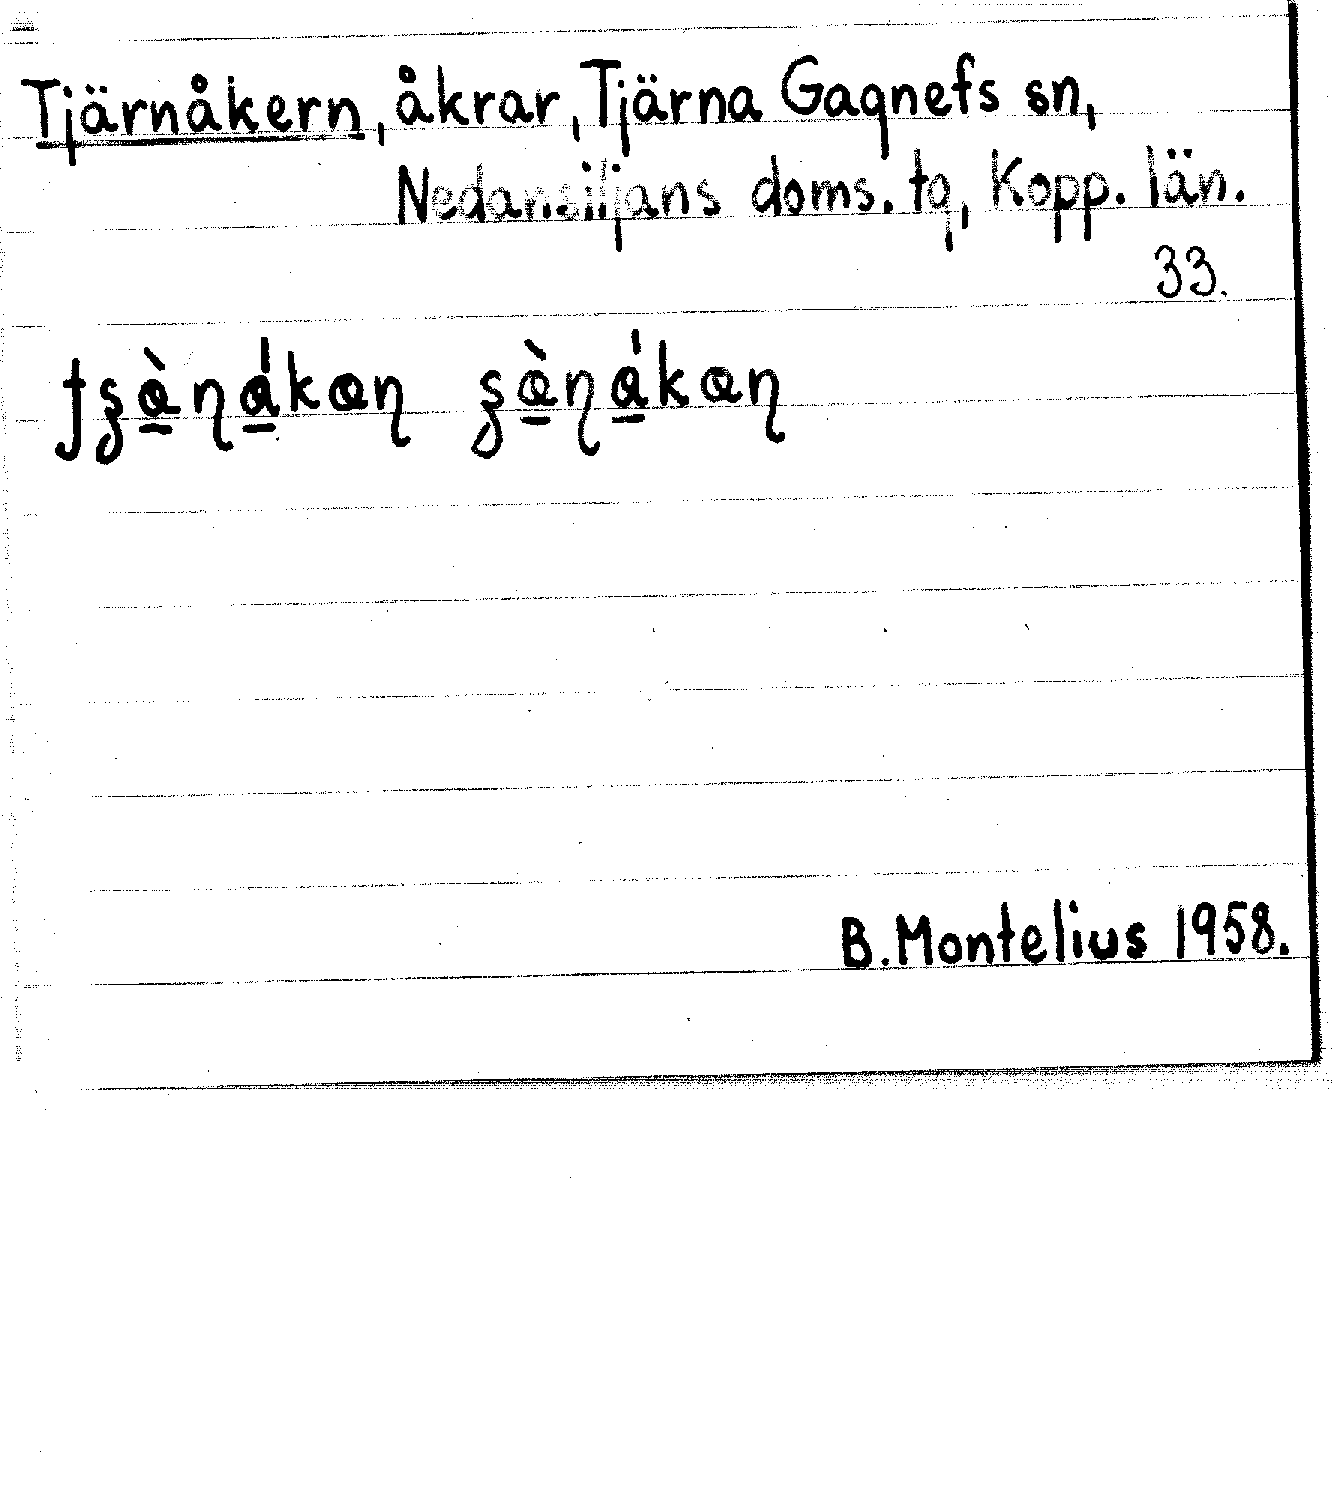 Tjärnåkern, åkrar, Tjärna Gagnefs sn,
Nedansiljans doms. tg, Kopp. län.
33.
B. Montelius 1958.